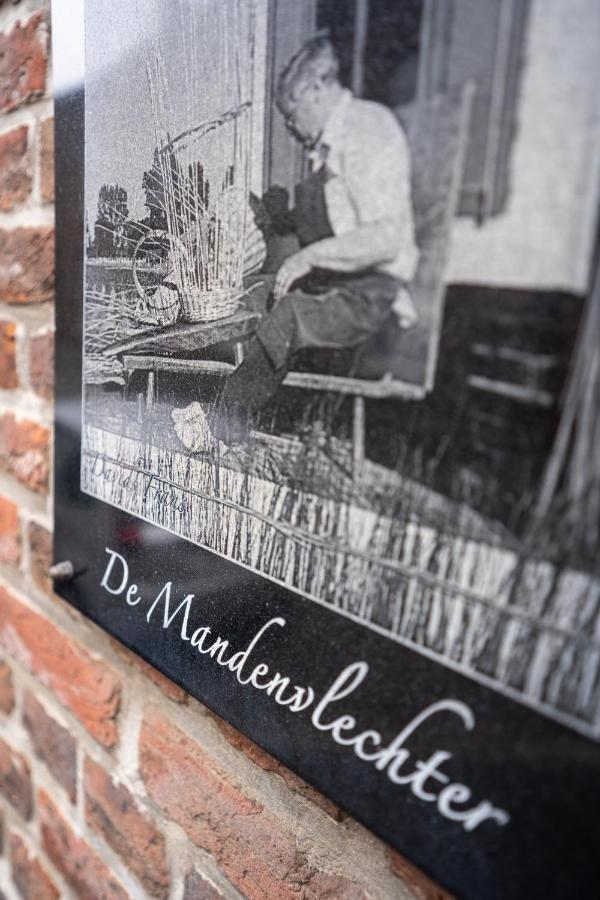 David Frans
De Mandenvlechter